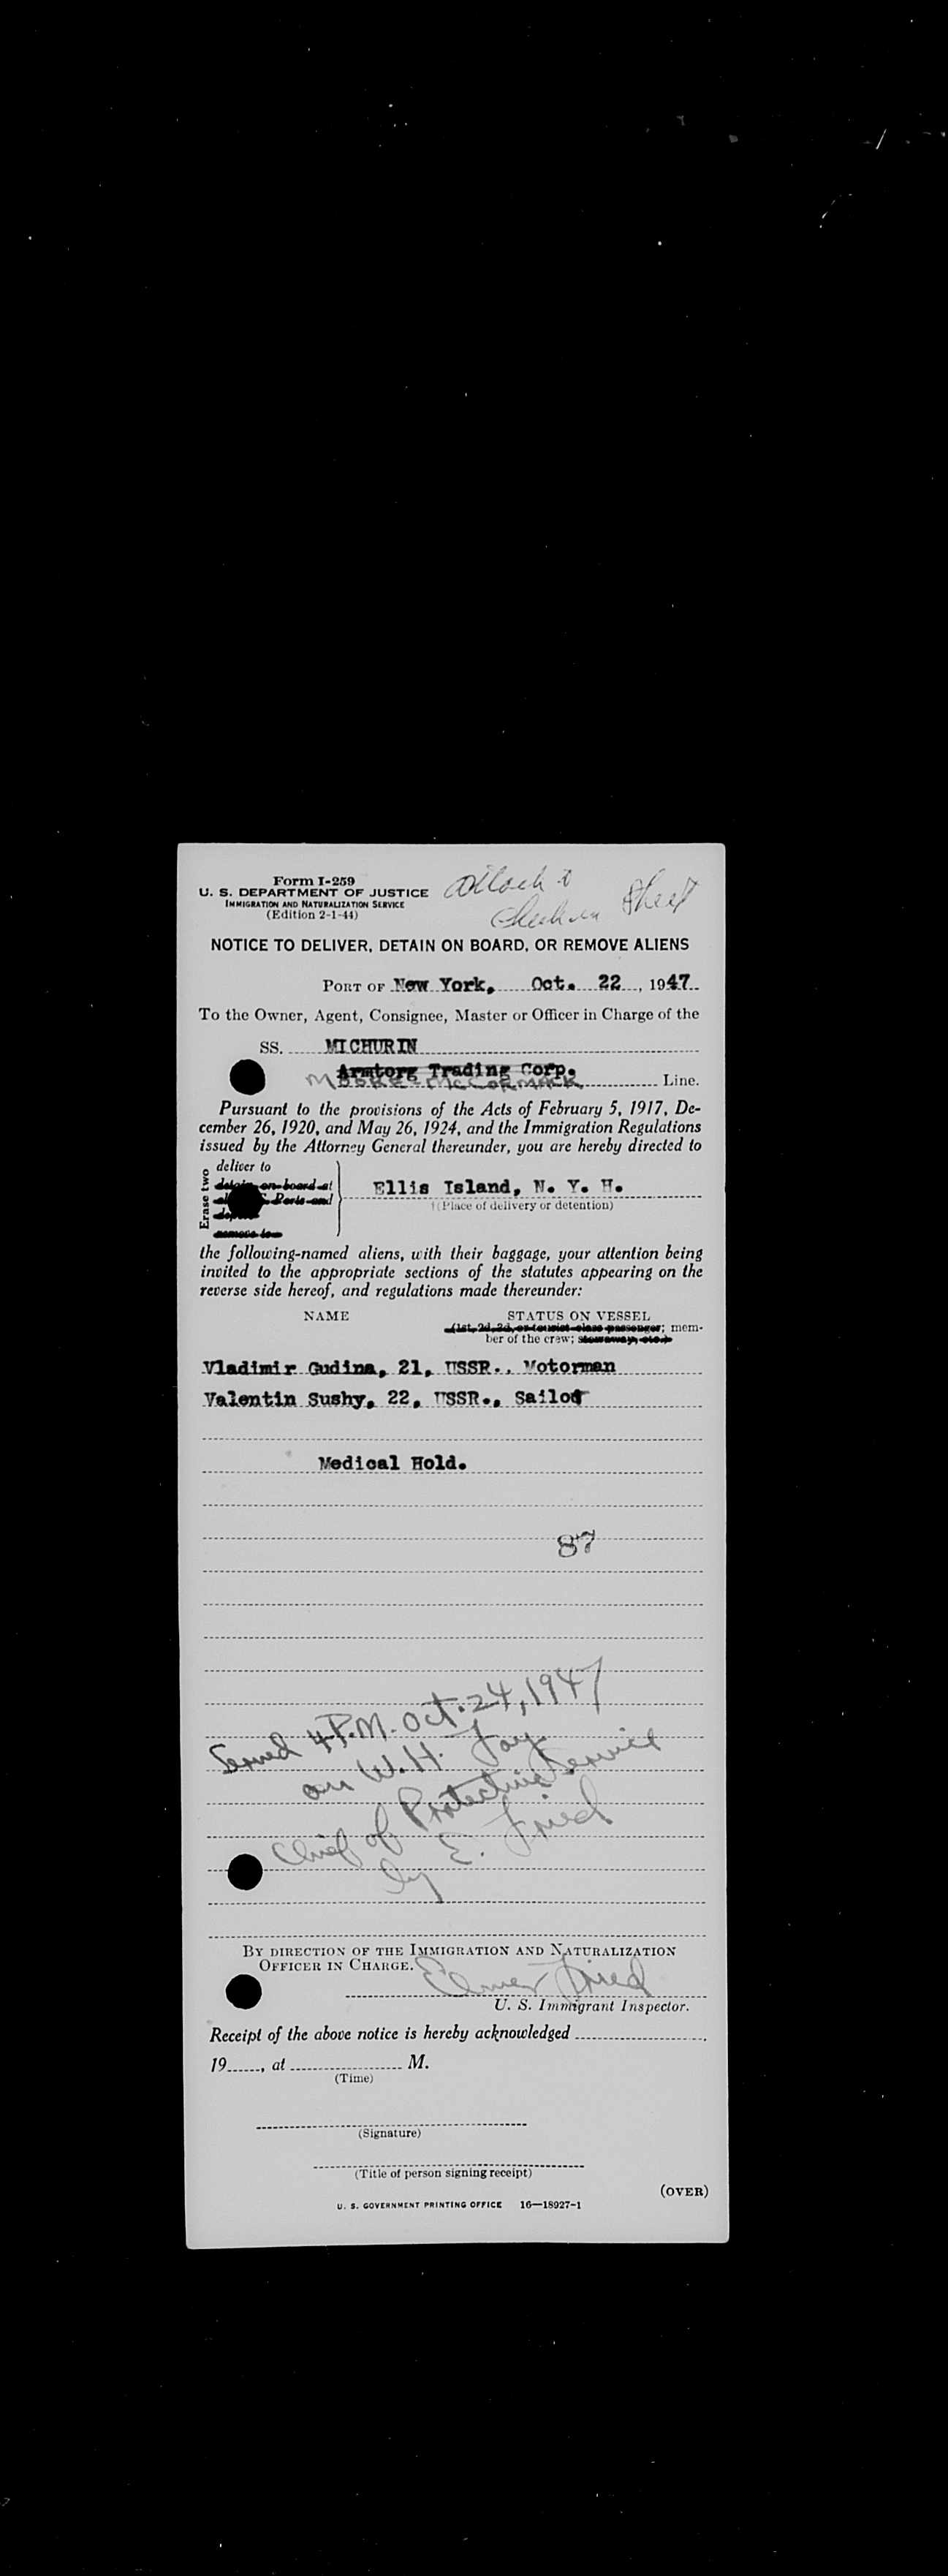 Form I-259
U. S. DEPARTMENT OF JUSTICE
IMMIGRATION AND NATURALIZATION SERVICE
(Edition 2-1-44)
Attach to
Check in Sheet
NOTICE TO DELIVER, DETAIN ON BOARD, OR REMOVE ALIENS
PORT OF New York, Oct. 22, 1947
To the Owner, Agent, Consignee, Master or Officer in Charge of the
SS. MICHURIN
Armtorg Trading Corp.
MOORE-McCORMACK Line.
Pursuant to the provisions of the Acts of February 5, 1917, De-
cember 26, 1920, and May 26, 1924, and the Immigration Regulations
issued by the Attorney General thereunder, you are hereby directed to
Erase two
deliver to
detain on board at
Ports and
remove to
Ellis Island, N. Y. H.
(Place of delivery or detention)
the following-named aliens, with their baggage, your attention being
invited to the appropriate sections of the statutes appearing on the
reverse side hereof, and regulations made thereunder:
NAME STATUS ON VESSEL
(1st, 2d, 3d, or tourist class passenger; mem-
ber of the crew; stowaway, etc.)
Vladimir Gudina, 21, USSR., Motorman
Valentin Sushy, 22, USSR., Sailor
Medical Hold.
87
Served 4 P.M. Oct. 24, 1947
on W. H. Joy
Chief of Protective Service
by E. Fried
BY DIRECTION OF THE IMMIGRATION AND NATURALIZATION
OFFICER IN CHARGE.
Elmer Fried
U. S. Immigrant Inspector.
Receipt of the above notice is hereby acknowledged
19, at M.
(Time)
(Signature)
(Title of person signing receipt)
(OVER)
U. S. GOVERNMENT PRINTING OFFICE 16—18927-1